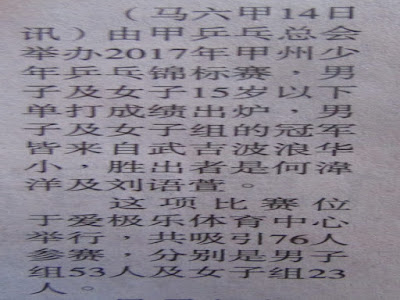 （马六甲14日
讯）由甲乒乓总会
举办2017年甲州少
年乒乓锦标赛，男
子及女子15岁以下
单打成绩出炉，男
子及女子组的冠军
皆来自武吉波浪华
小，胜出者是何漳
洋及刘语萱。
这项比赛位
于爱极乐体育中心
举行，共吸引76人
参赛，分别是男子
组53人及女子组23
人。